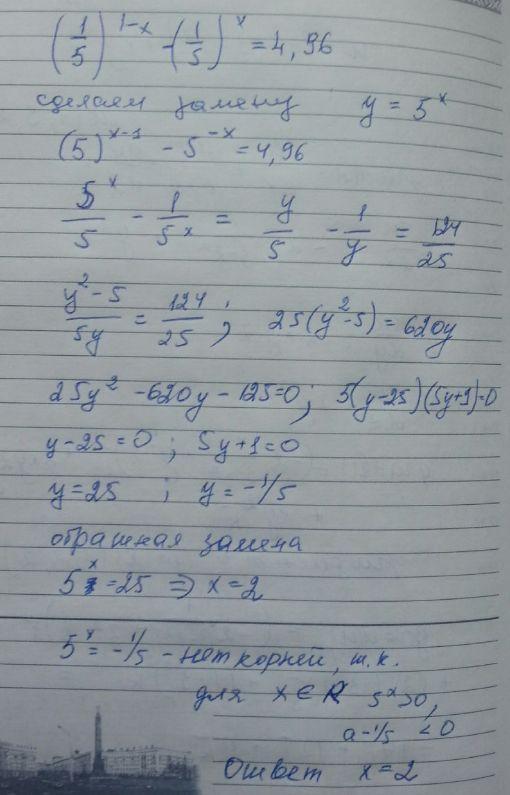 (1/5)^(1-x) - (1/5)^x = 4,96
сделаем замену y = 5^x
(5)^(x-1) - 5^(-x) = 4,96
5^x/5 - 1/5^x = y/5 - 1/y = 124/25
(y^2-5)/5y = 124/25 ; 25(y^2-5) = 620y
25y^2 - 620y - 125=0 ; 5(y-25)(5y+1)=0
y-25=0 ; 5y+1=0
y=25 ; y=-1/5
обратная замена
5^x=25 ⇒ x=2
5^x = -1/5 - нет корней, т.к.
для x∈R 5^x>0,
а -1/5 <0
Ответ x=2